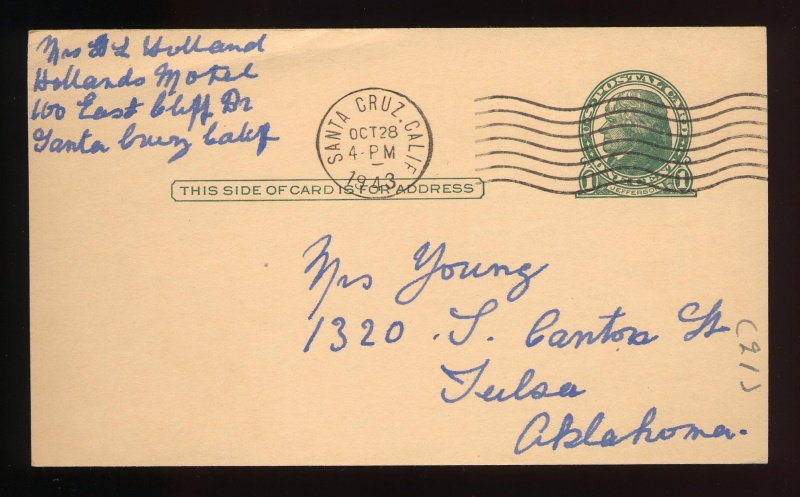 Mrs H L Holland
Hollands Motel
100 East Cliff Dr
Santa Cruz Calif
SANTA CRUZ, CALIF.
OCT 28
4-PM
1943
U.S. POSTAL CARD
1 JEFFERSON 1
THIS SIDE OF CARD IS FOR ADDRESS
Mrs Young
1320 S. Canton St
Tulsa
Oklahoma.
(21)